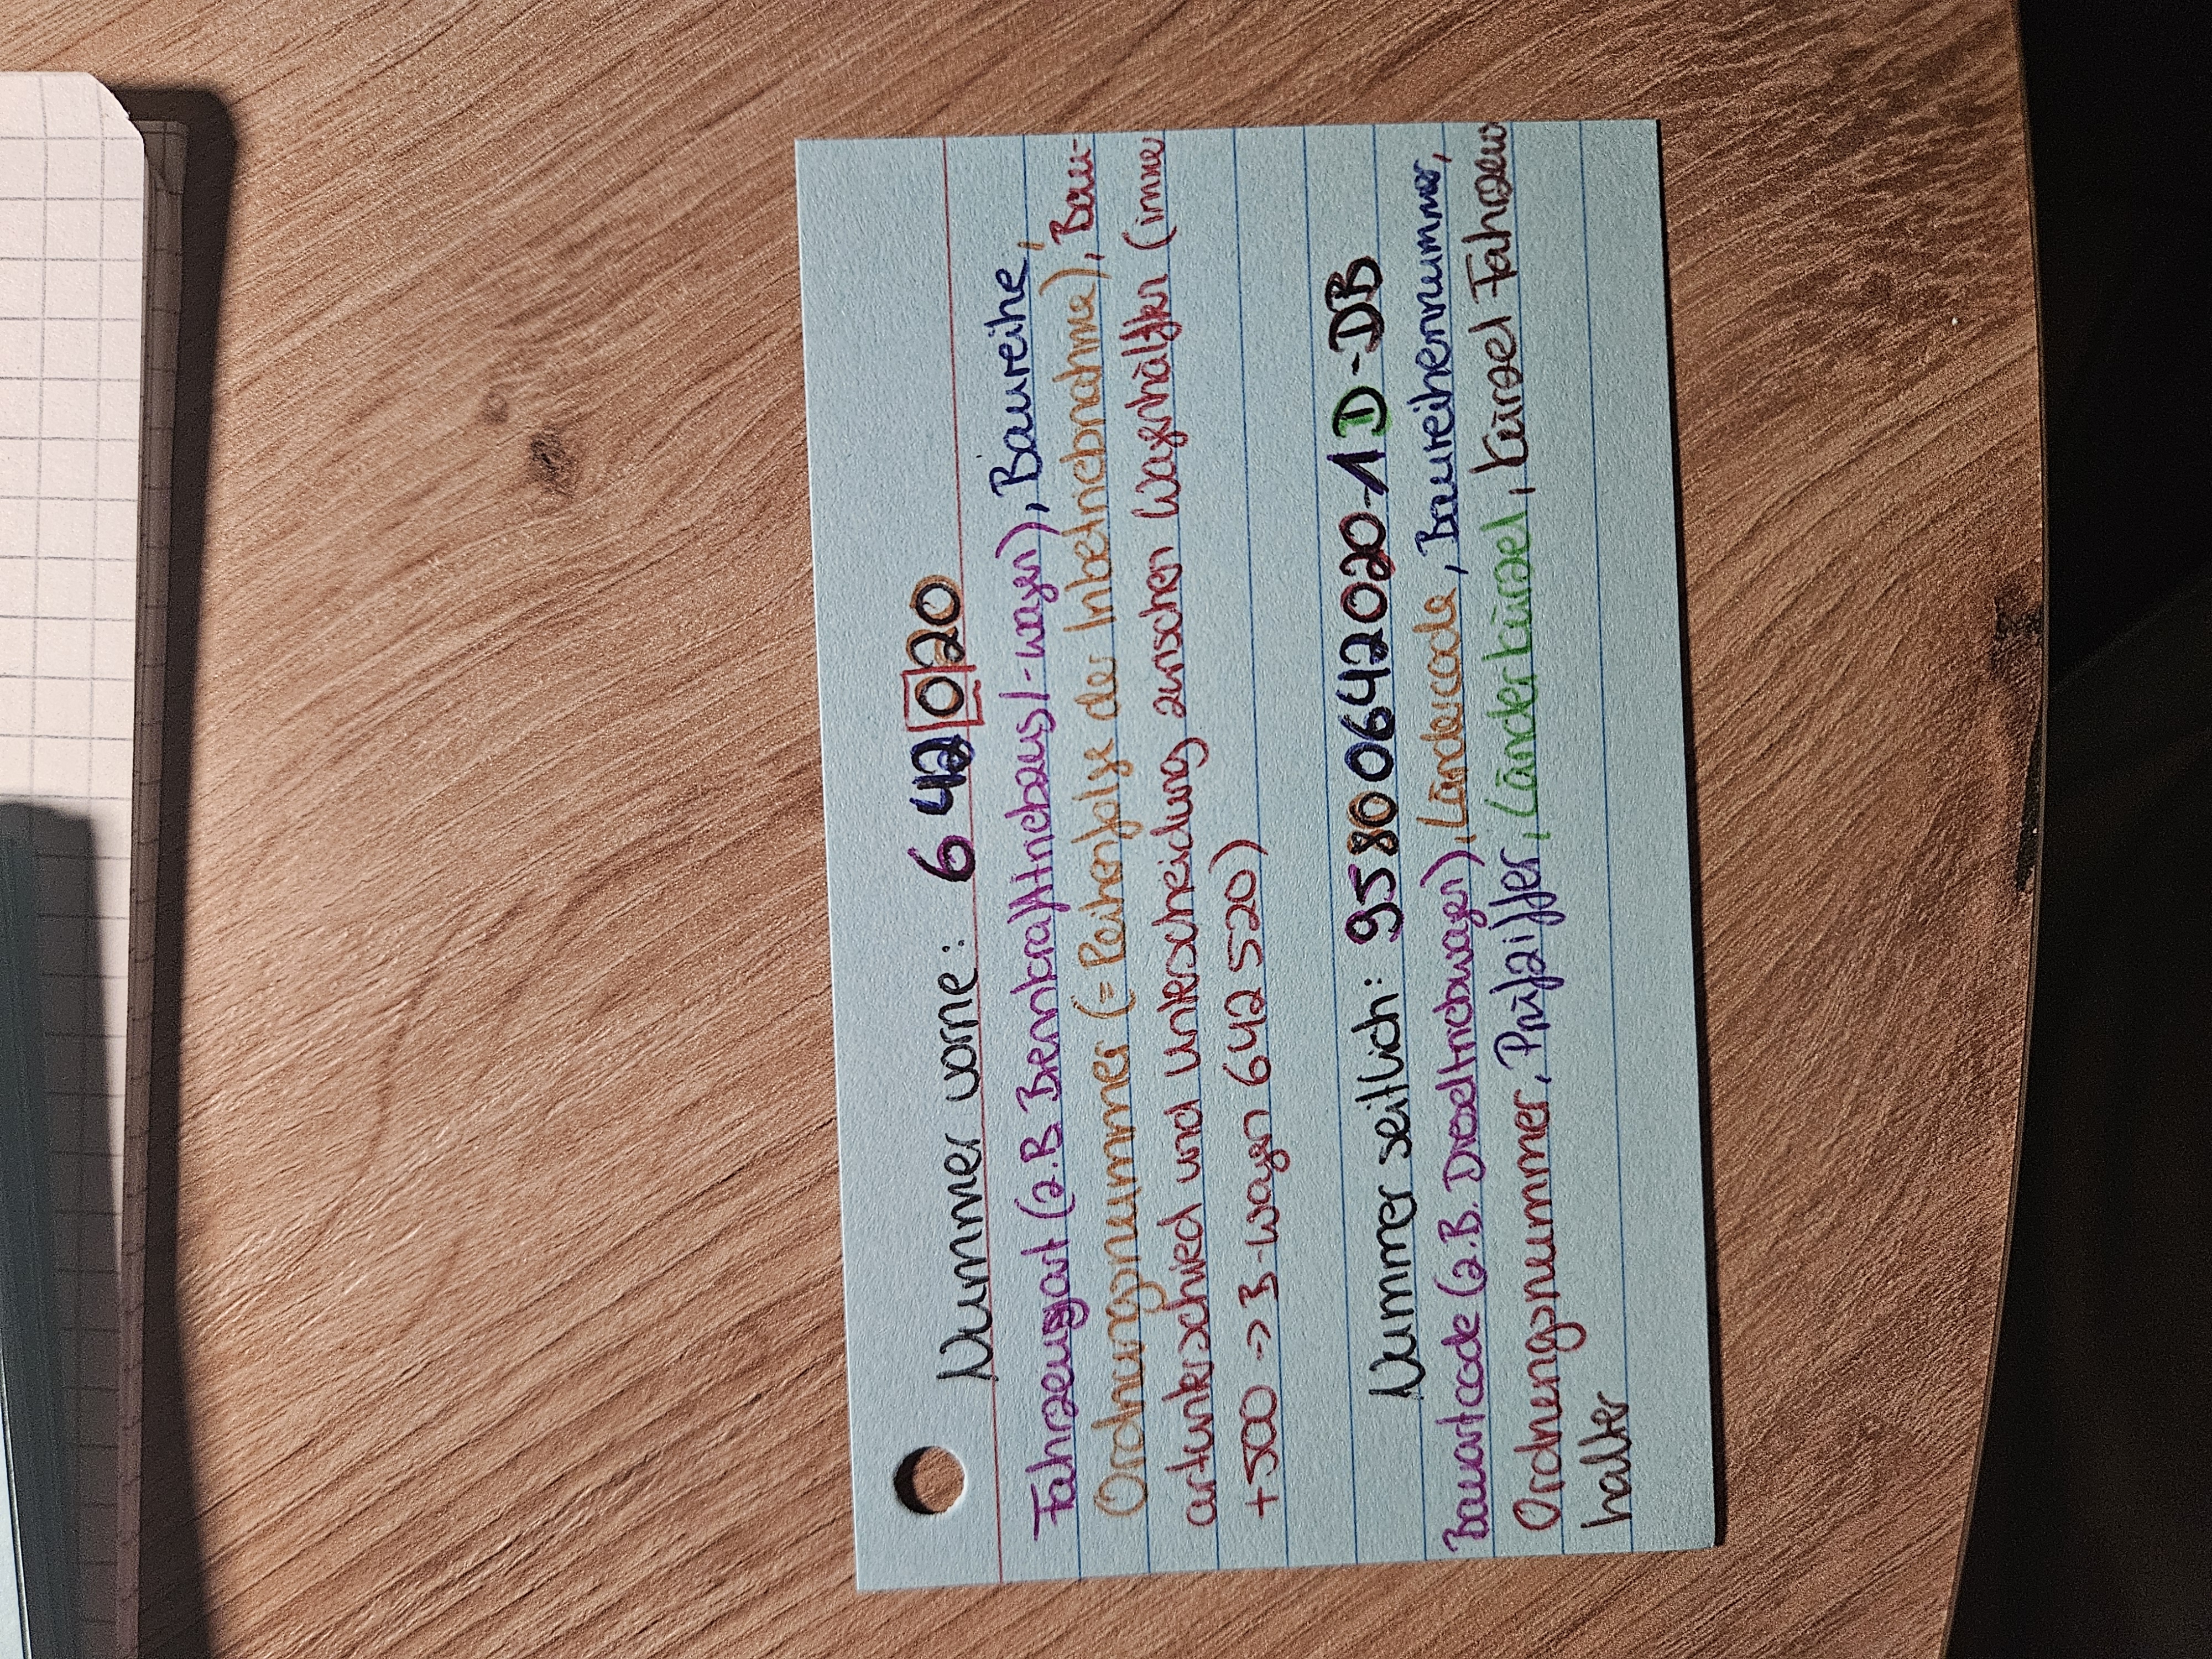 Nummer vorne: 6 42 0 20
Fahrzeugart (z.B. Brennkrafttriebaus/-wagen), Baureihe,
Ordnungsnummer (= Reihenfolge der Inbetriebnahme), Bau-
artunterschied und Unterscheidung zwischen Wagenhälften (immer
+500 -> B-Wagen 642 520)
Nummer seitlich: 95 80 0642 020-1 D-DB
Bauartcode (z.B. Dieseltriebwagen), Ländercode, Baureihennummer,
Ordnengsnummer, Prüfziffer, Länderkürzel, Kürzel Fahrzeug
halter